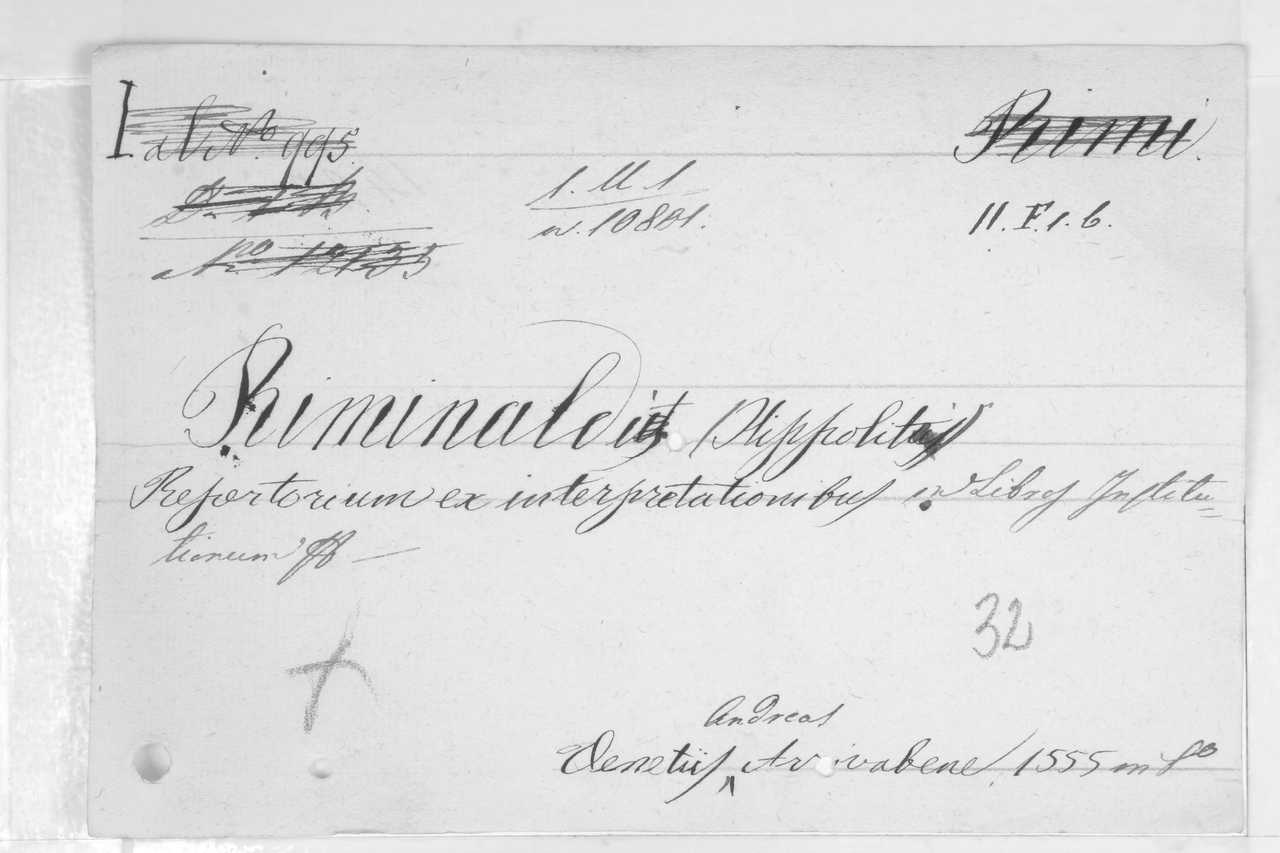 I ab N.º 995. Rimi.
Nº 12135
I. M 1
n. 10801.
II. F. 1. 6.
Riminaldi (Hippolitus)
Repertorium ex interpretationibus in Libros Institu=
tionum ff —
32
Andreas
Venetiis, Arrivabene, 1555 in fº